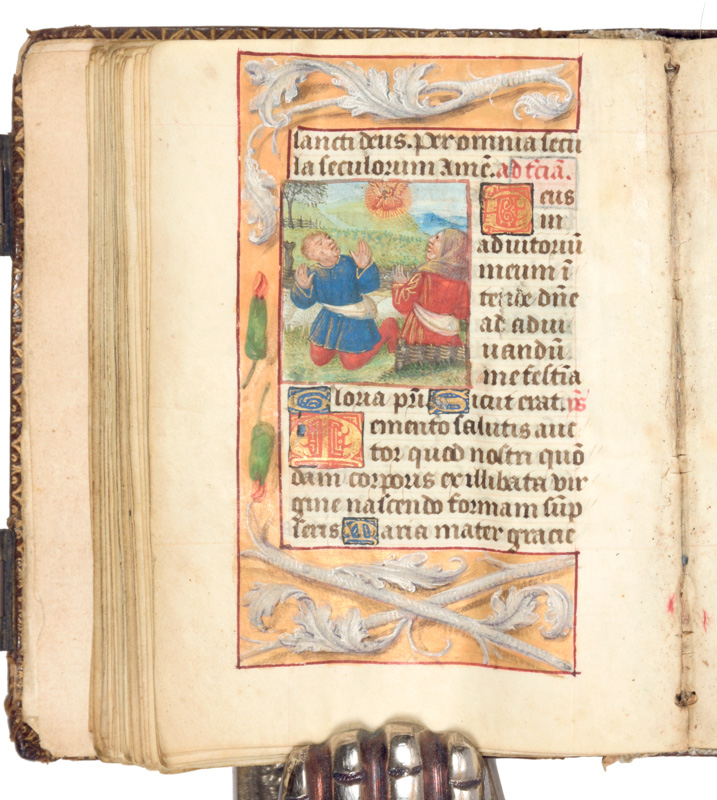 sancti deus. Per omnia secu
la seculorum amē. ad tciā.
Deus
in
adiutoriū
meum ī
tende dne
ad adiu
uandū
me festīa
Gloria pri Sicut erat. ps
Memento salutis auc
tor quod nostri quō
dam corporis ex illibata vir
gine nascendo formam sūp
seris Maria mater gracie